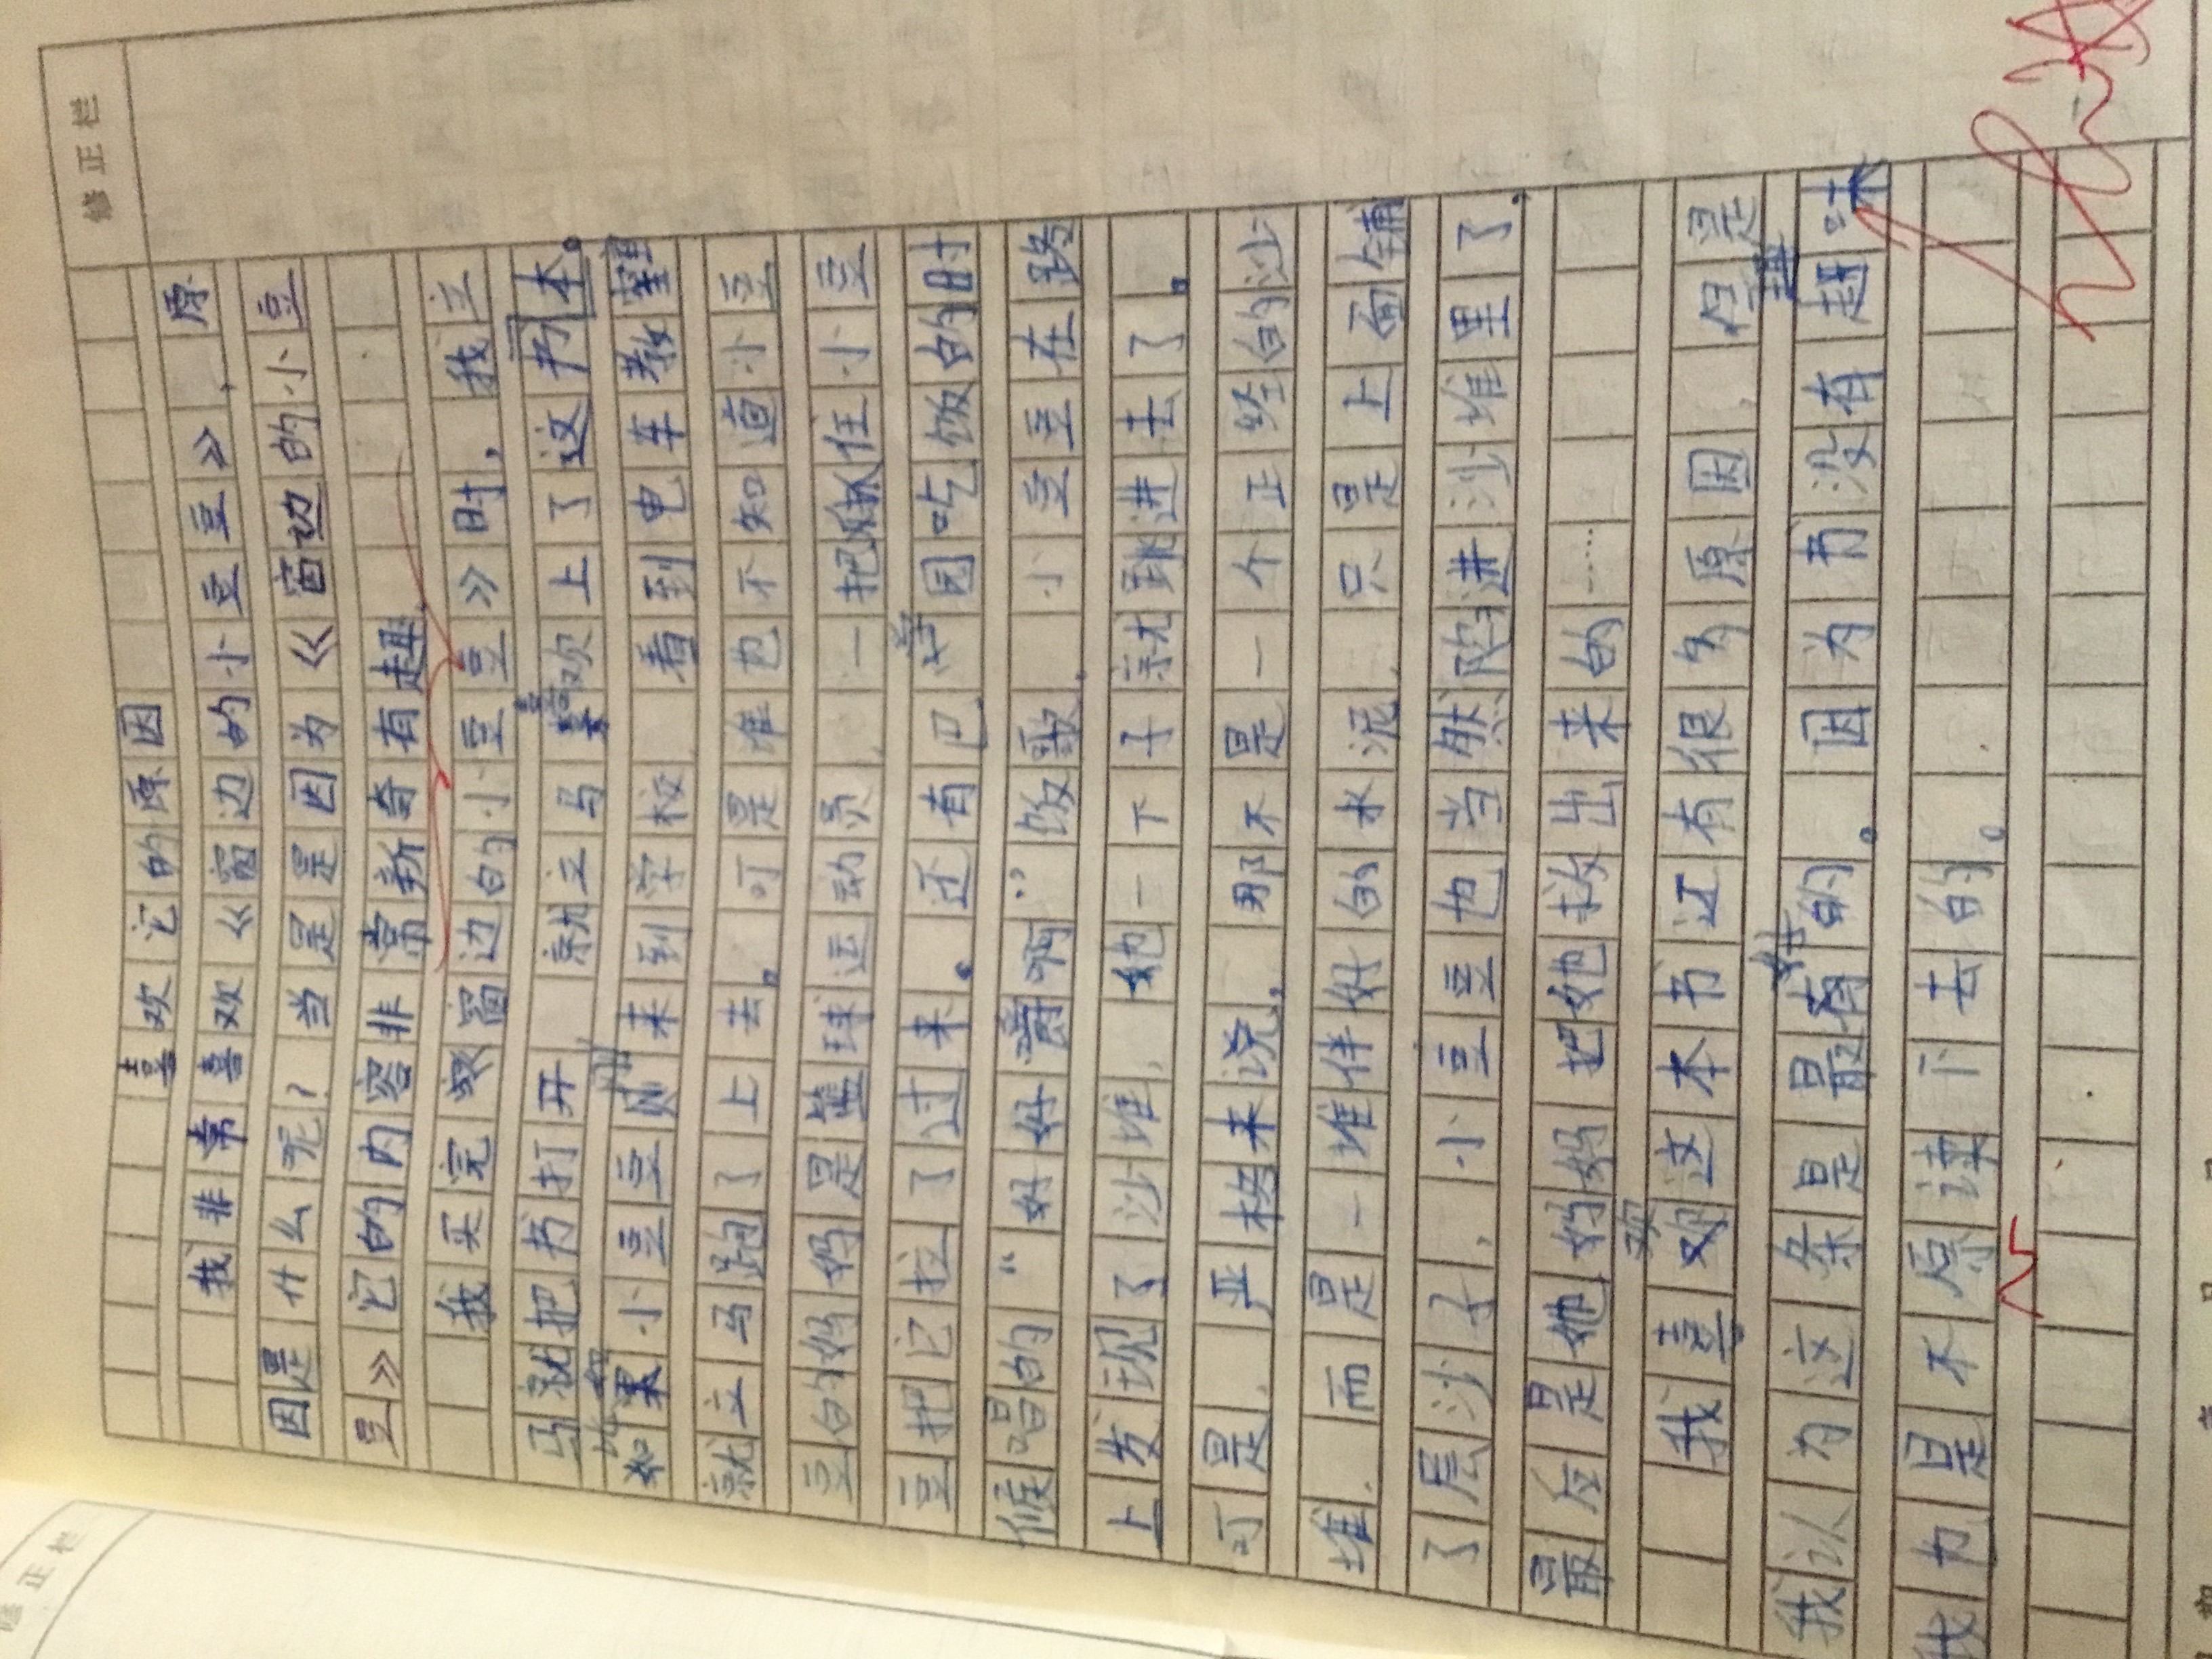 修正栏
喜欢它的原因
我非常喜欢《窗边的小豆豆》,原
因是什么呢?当是是因为《窗边的小豆
豆》它的内容非常新奇有趣。
我买完窗边的小豆豆》时,我立
马就把书打开,就立马喜欢上了这书本。
比如小豆豆刚来到学校,看到电车教室
就立马跑了上去。可是谁也不知道小豆
豆的妈妈是篮球运动员,一把抓住小豆
豆把它拉了过来。还有巴学园吃饭的时
候唱的“好好嚼啊”饭歌,小豆豆在路
上发现了沙堆,她一下子就跳进去了。
可是,严格来说,那不是一个正经的沙
堆,而是一堆伴好的水泥,只是上面铺
了层沙子,小豆豆也当然陷进沙堆里了。
最后是她妈妈把她救出来的……
我喜欢这本书还有很多原因,但是
我认为这条是最有的。因为书没有趣味
我力是不原读下去的。
修正栏